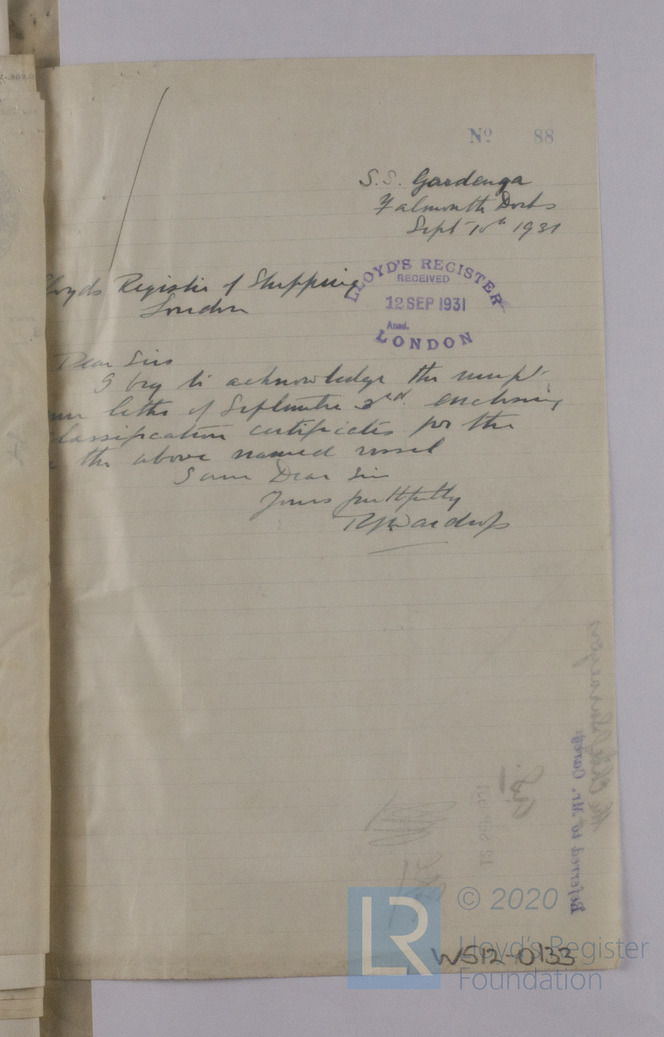 Nº 88
S.S. Gardenga
Falmouth Docks
Sept 10th 1931
Lloyds Register of Shipping
London
LLOYD'S REGISTER
RECEIVED
12 SEP 1931
Ansd.
LONDON
Dear Sirs
I beg to acknowledge the receipt
letter of September 3rd. enclosing
classification certificates for the
the above named vessel
I am Dear Sir
Yours faithfully
Wardrop
Referred to Mr.
© 2020
LR
Lloyd's Register
Foundation
WS12-0133